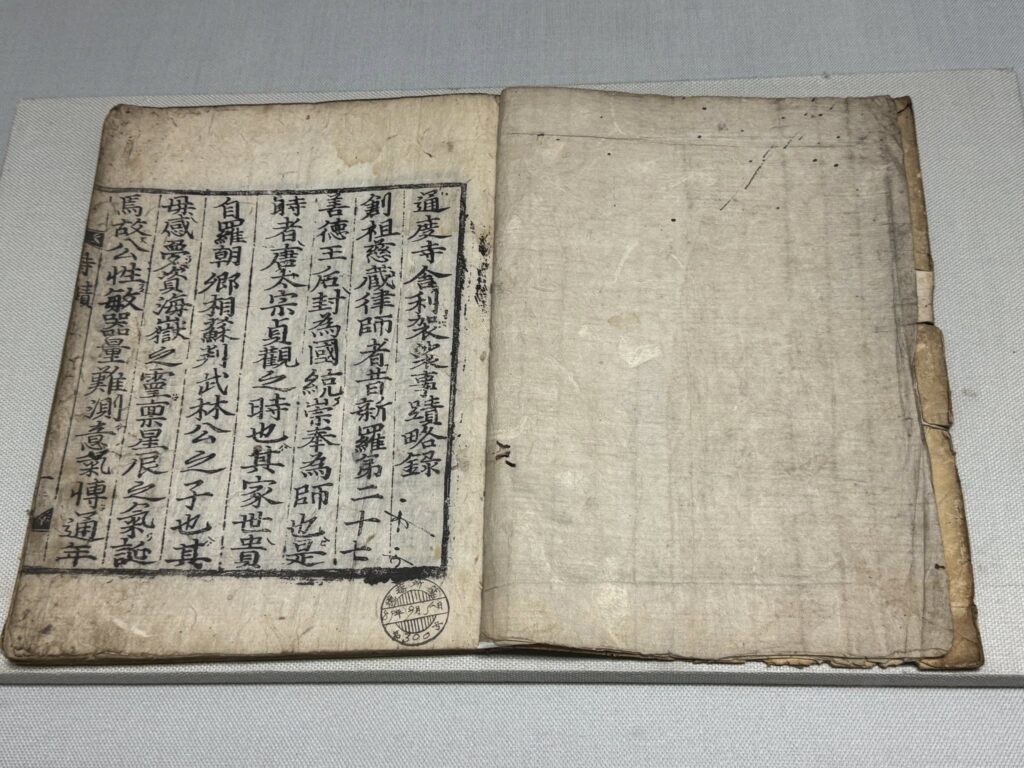 通度寺舍利袈裟事蹟略錄
創祖慈藏律師者昔新羅第二十七
善德王后封為國統崇奉為師也是
時者唐太宗貞觀之時也其家世貴
自羅朝鄉相蘇判武林公之子也其
母感夢資海嶽之靈禀星辰之氣誕
焉故公性敏器量難測意氣愽通年
300